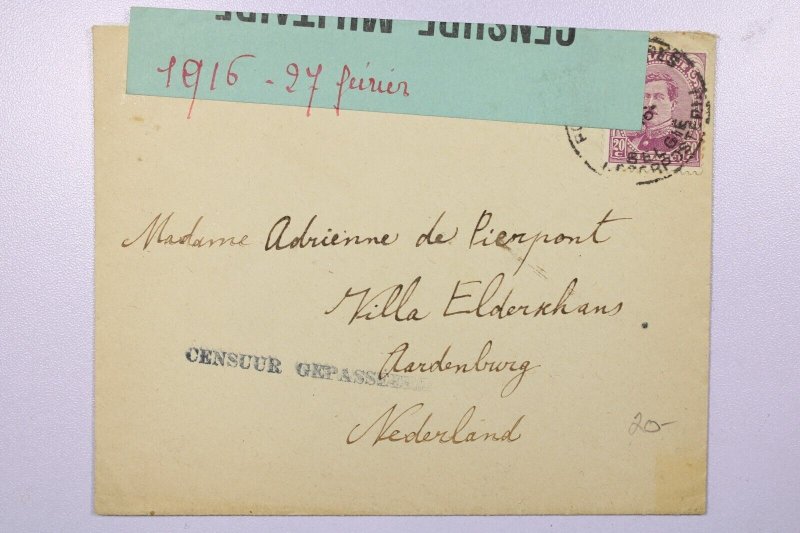 CENSURE MILITAIRE
1916 - 27 février
20 c
BELGIË
LEGERPOSTERIJ
Madame Adrienne de Pierpont
Villa Elderkhans
Aardenburg
CENSUUR GEPASSEERD
Nederland
20-